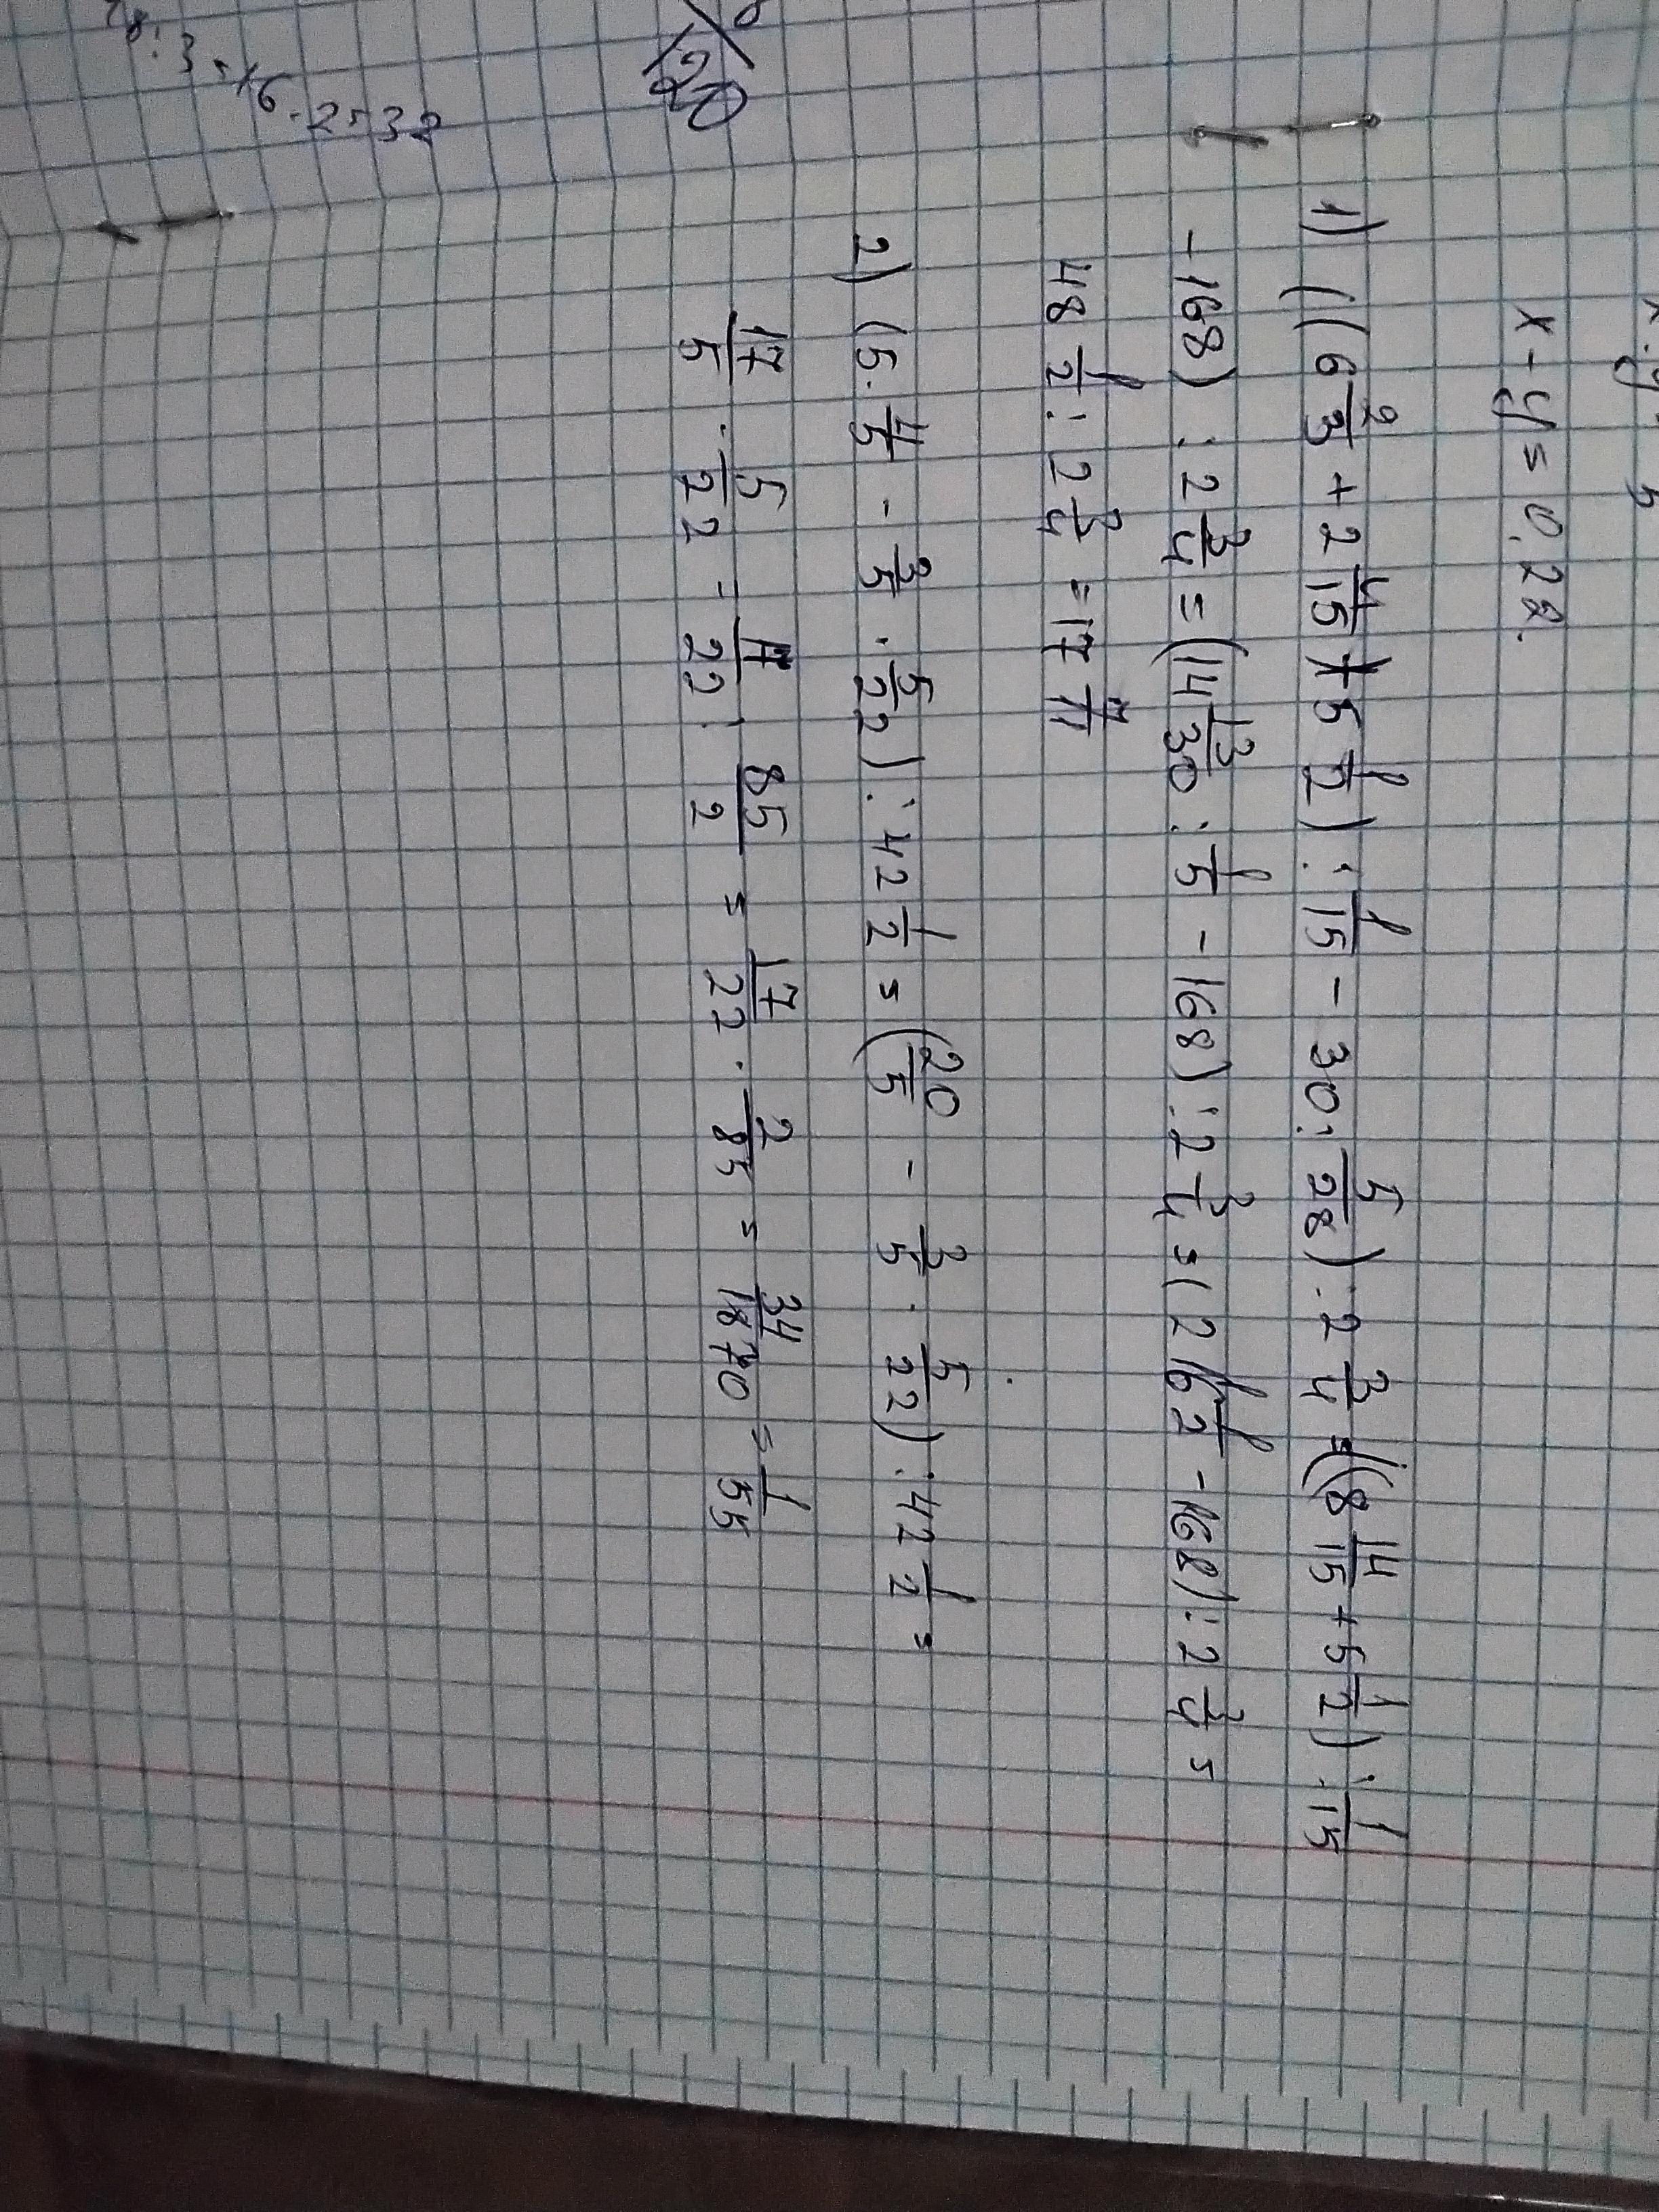 x - y = 0,28.
1) ((6 2/3 + 2 4/15 + 5 1/2) : 1/15 - 30 : 5/28) : 2 3/4 = ((8 14/15 + 5 1/2) : 1/15
- 168) : 2 3/4 = (14 13/30 : 1/15 - 168) : 2 3/4 = (216 1/2 - 168) : 2 3/4 =
48 1/2 : 2 3/4 = 17 7/11
2) (5 · 4/5 - 3/5 · 5/22) : 42 1/2 = (20/5 - 3/5 · 5/22) : 42 1/2 =
17/5 · 5/22 = 17/22 : 85/2 = 17/22 · 2/85 = 34/1870 = 1/55
: 3 = 16 · 2 = 32